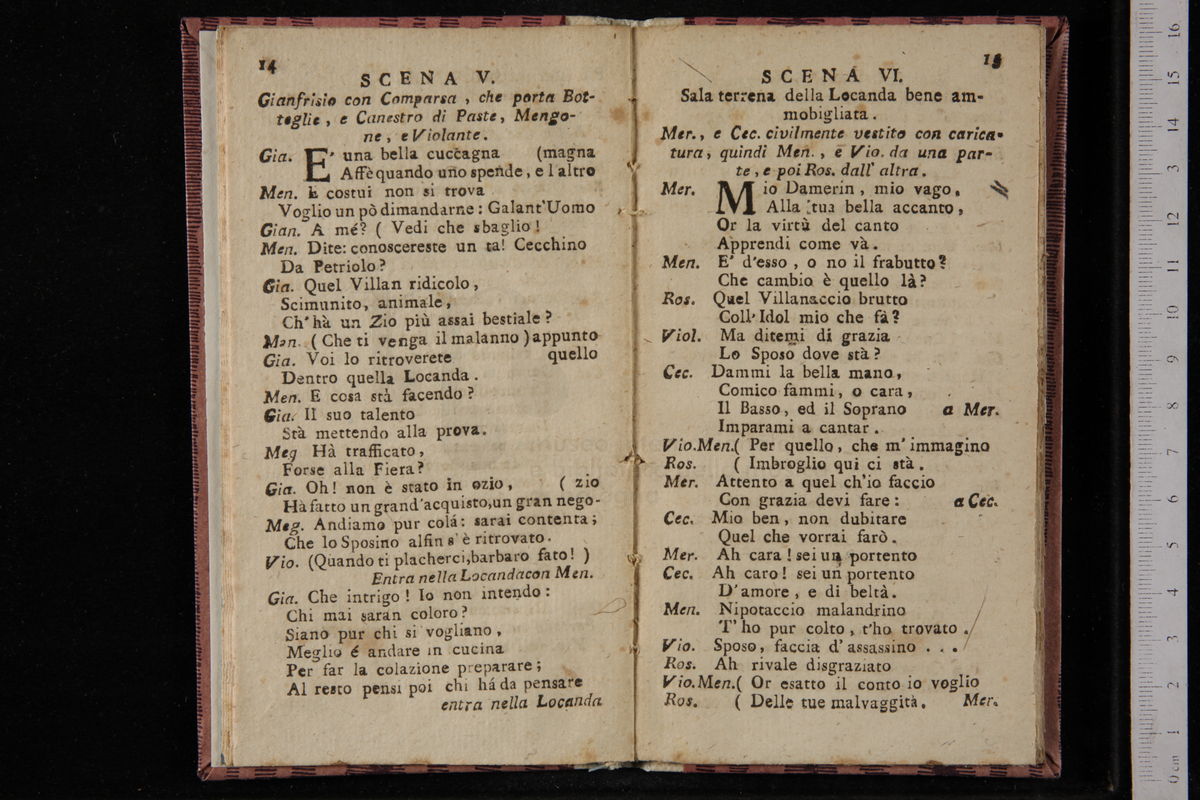 14
SCENA V.
Gianfrisio con Comparsa , che porta Bot-
teglie , e Canestro di Paste, Mengo-
ne , e Violante.
Gia. E' una bella cuccagna (magna
Affè quando uno spende, e l'altro
Men. E costui non si trova
Voglio un pò dimandarne : Galant'Uomo
Gian. A mé? ( Vedi che sbaglio !
Men. Dite: conoscereste un ta! Cecchino
Da Petriolo ?
Gia. Quel Villan ridicolo ,
Scimunito, animale ,
Ch' hà un Zio più assai bestiale ?
Men. ( Che ti venga il malanno ) appunto
Gia. Voi lo ritroverete quello
Dentro quella Locanda .
Men. E cosa stà facendo ?
Gia. Il suo talento
Stà mettendo alla prova.
Meg Hà trafficato ,
Forse alla Fiera?
Gia. Oh! non è stato in ozio , ( zio
Hà fatto un grand'acquisto,un gran nego-
Meg. Andiamo pur colà: sarai contenta ;
Che lo Sposino alfin s' è ritrovato .
Vio. (Quando ti placherci,barbaro fato! )
Entra nella Locandacon Men.
Gia. Che intrigo ! Io non intendo :
Chi mai saran coloro ?
Siano pur chi si vogliano ,
Meglio é andare in cucina
Per far la colazione preparare ;
Al resto pensi poi chi há da pensare
entra nella Locanda
15
SCENA VI.
Sala terrena della Locanda bene am-
mobigliata .
Mer. , e Cec. civilmente vestito con carica-
tura , quindi Men. , e Vio. da una par-
te , e poi Ros. dall' altra .
Mer. Mio Damerin , mio vago ,
Alla tua bella accanto ,
Or la virtù del canto
Apprendi come và .
Men. E' d'esso , o no il frabutto ?
Che cambio è quello là ?
Ros. Quel Villanaccio brutto
Coll' Idol mio che fà ?
Viol. Ma ditemi di grazia
Lo Sposo dove stà ?
Cec. Dammi la bella mano ,
Comico fammi, o cara ,
Il Basso , ed il Soprano a Mer.
Imparami a cantar .
Vio.Men.( Per quello , che m' immagino
Ros. ( Imbroglio qui ci stà .
Mer. Attento a quel ch'io faccio
Con grazia devi fare : a Cec.
Cec. Mio ben , non dubitare
Quel che vorrai farò .
Mer. Ah cara ! sei un portento
Cec. Ah caro ! sei un portento
D' amore , e di beltà .
Men. Nipotaccio malandrino
T' ho pur colto , t'ho trovato .
Vio. Sposo, faccia d' assassino . . .
Ros. Ah rivale disgraziato
Vio.Men.( Or esatto il conto io voglio
Ros. ( Delle tue malvaggità . Mer.
0 cm 1 2 3 4 5 6 7 8 9 10 11 12 13 14 15 16